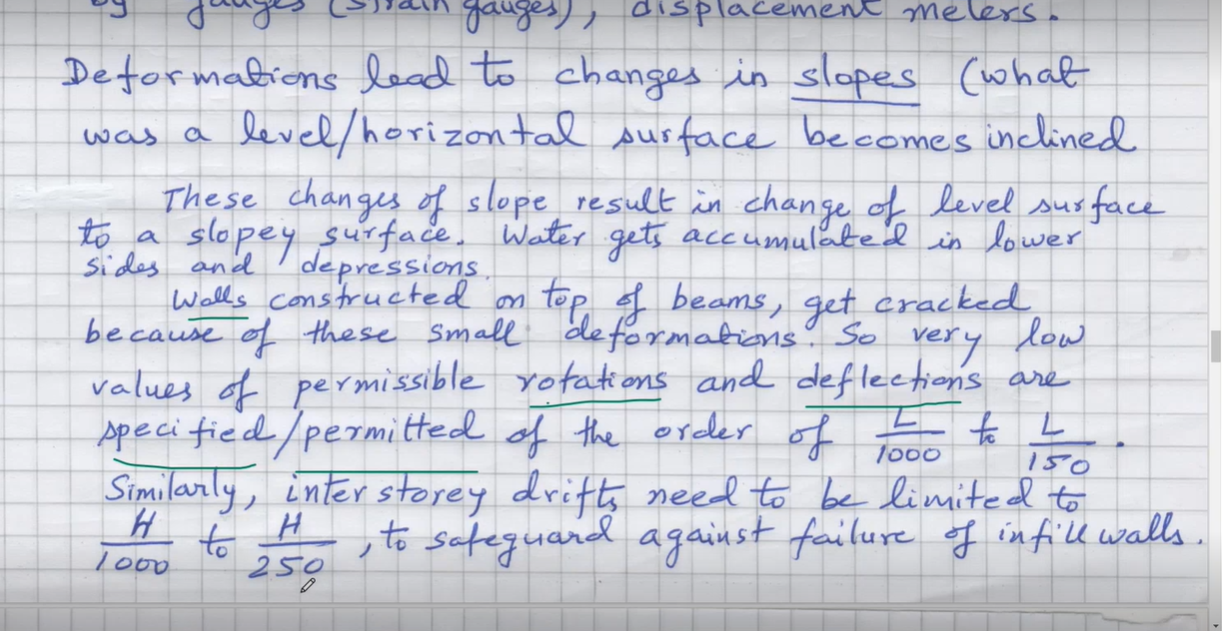 by gauges (strain gauges), displacement meters.
Deformations lead to changes in slopes (what
was a level/horizontal surface becomes inclined
These changes of slope result in change of level surface
to a slopey surface. Water gets accumulated in lower
sides and depressions.
Walls constructed on top of beams, get cracked
because of these small deformations. So very low
values of permissible rotations and deflections are
specified/permitted of the order of L/1000 to L/150.
Similarly, inter storey drifts need to be limited to
H/1000 to H/250, to safeguard against failure of infill walls.